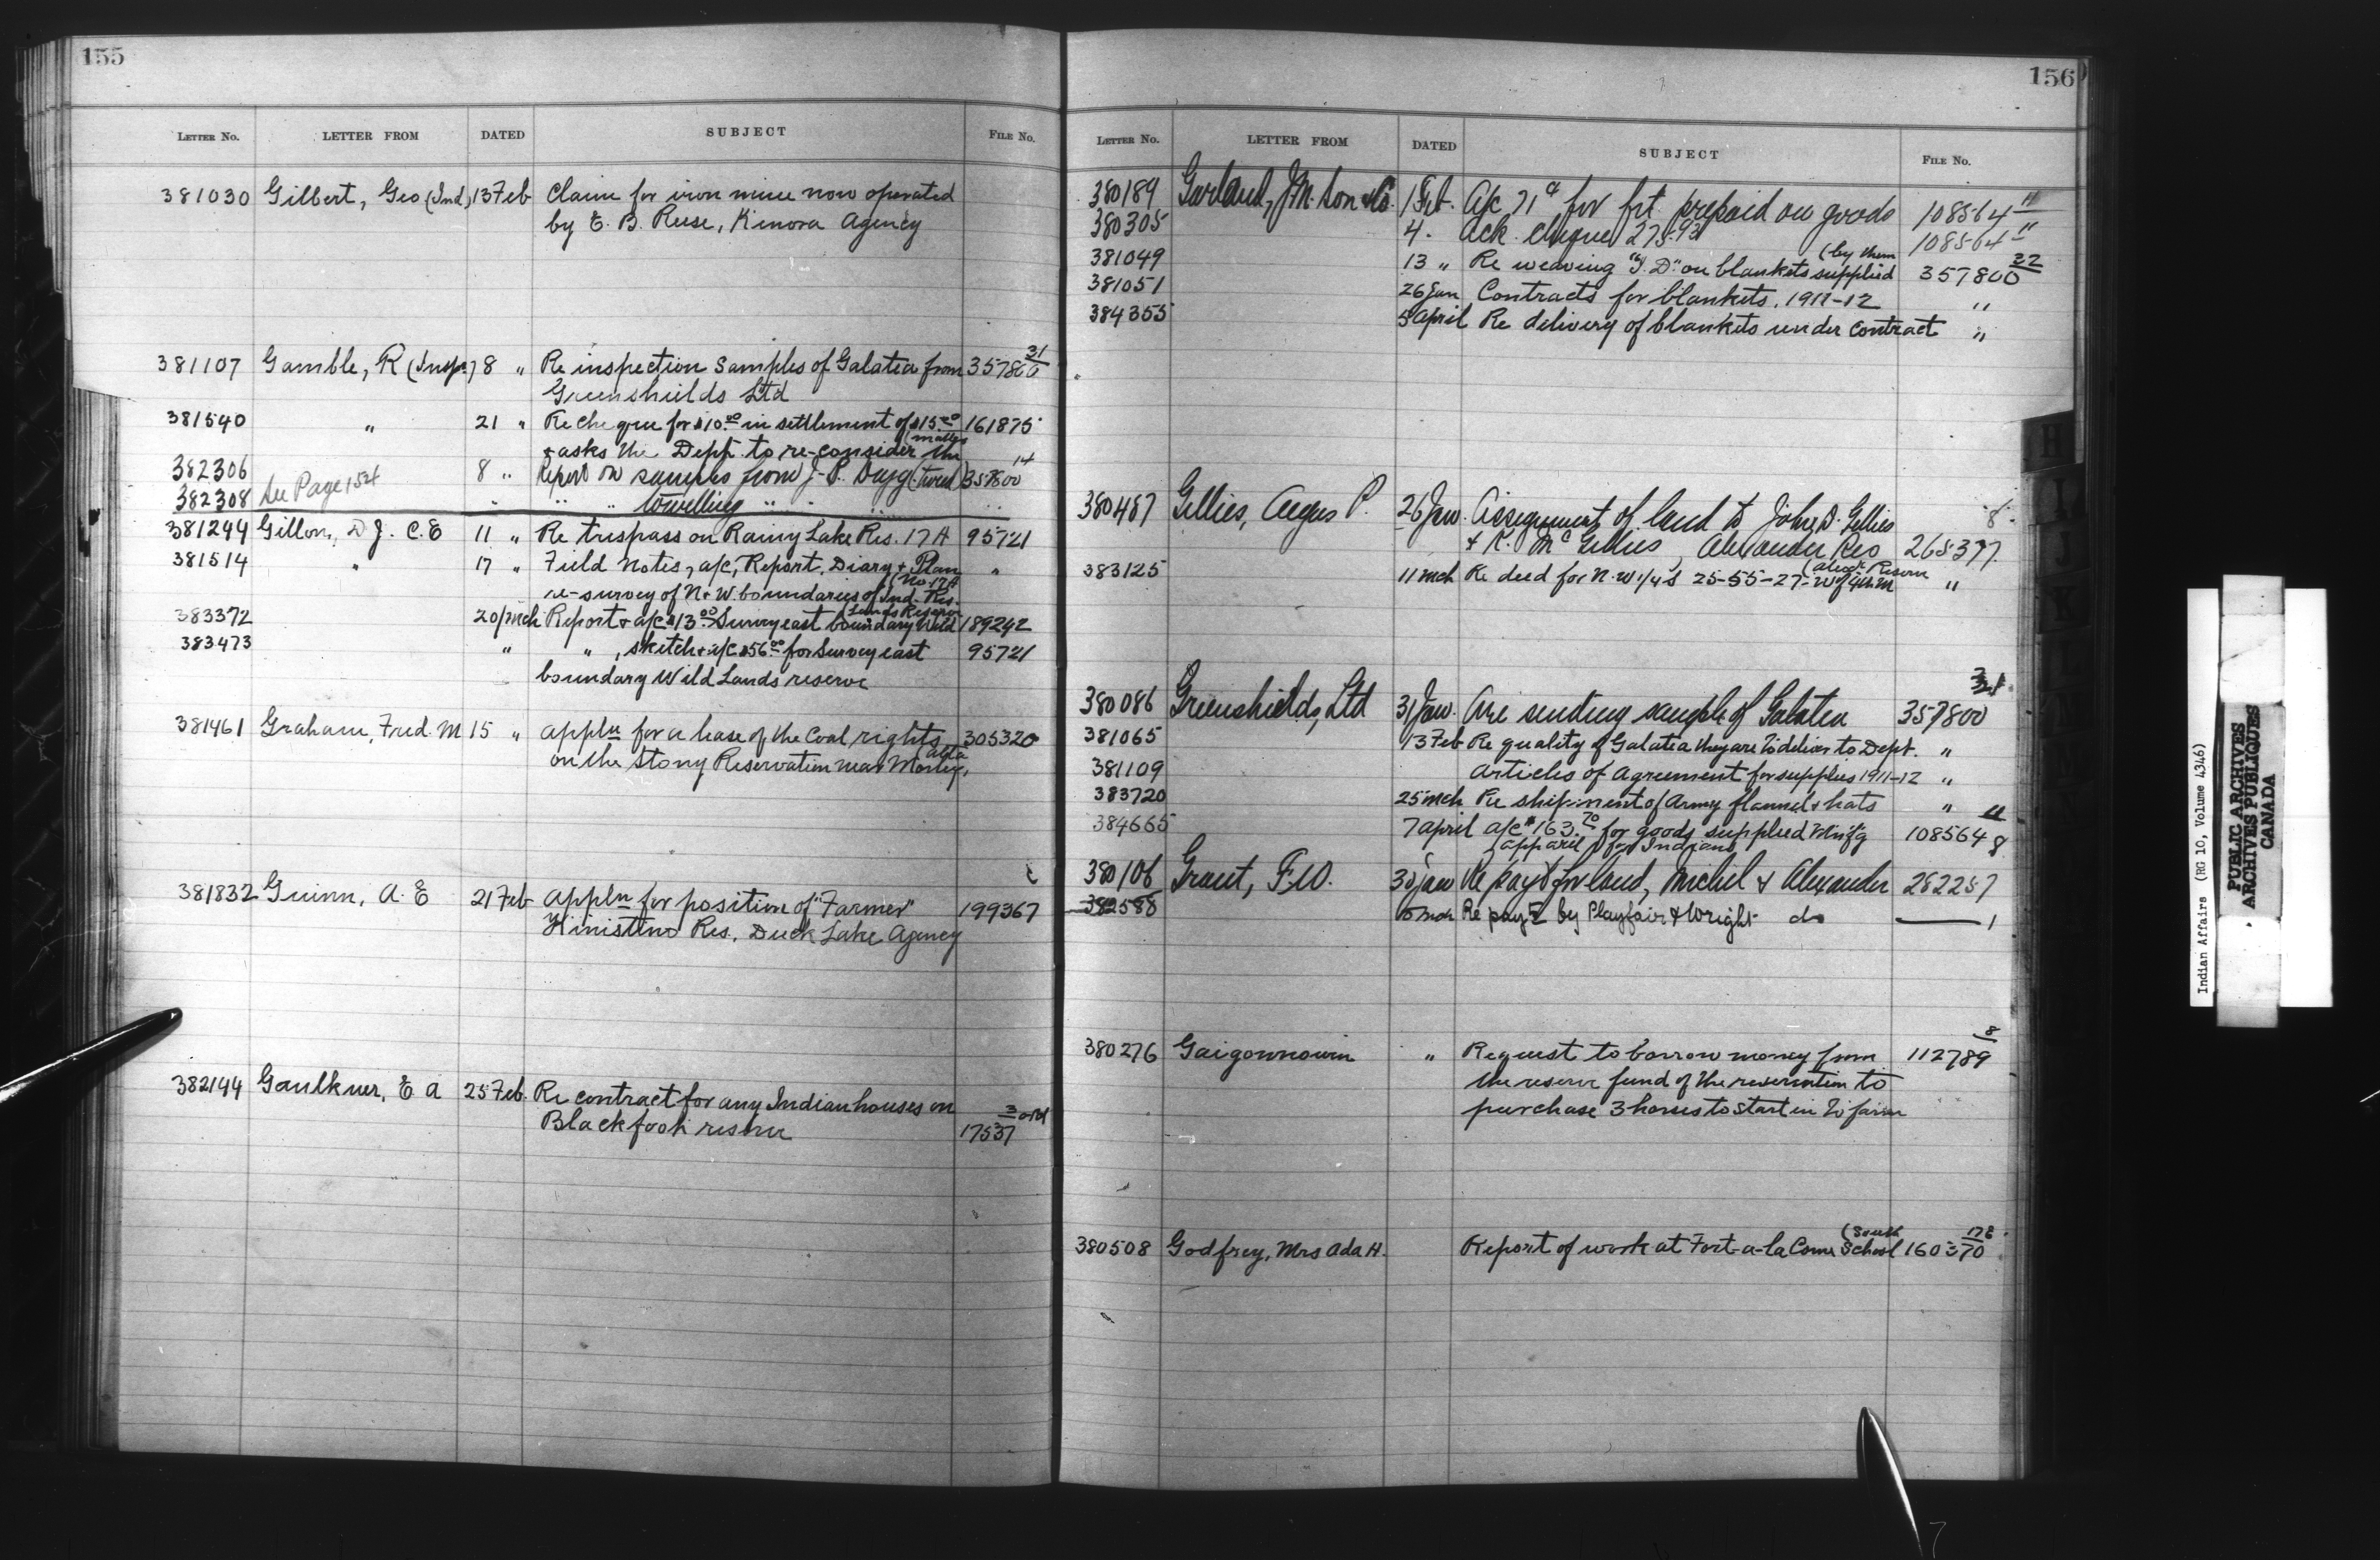 155
LETTER NO. LETTER FROM DATED SUBJECT FILE NO.
381030 Gilbert, Geo (Ind) 13 Feb Claim for iron mine now operated
by E. B. Reese, Kenora Agency
31
381107 Gamble, R (Insp.) 8 " Re inspection samples of Galatea from 357800
Greenshields Ltd
381540 " 21 " Re cheque for $10.00 in settlement of $15.00 161875
(matter
& asks the Dept. to re-consider the
14
382306 8 " Report on samples from J. P. (Tweed) 357800
382308 See Page 154 " " " towelling " " "
381244 Gillon, D. J. C.E 11 " Re trespass on Rainy Lake Res. 17A 95721
381514 " 17 " Field Notes, a/c, Report, Diary & Plan "
(No. 17A
re-survey of N & W. boundaries of Ind. Res.
(Lands Reserve
383372 20 Mch Report & a/c $13.00 Survey east boundary Wild 189242
383473 " " , sketch & a/c $56.00 for Survey east 95721
boundary Wild Lands reserve
381461 Graham, Fred. M 15 " appln for a lease of the Coal rights 305320
Alta
on the Stony Reservation near Morley,
381832 Guinn, A. E 21 Feb appln for position of "Farmer" 199367
Kinistino Res. Duck Lake Agency
382144 Gaulkner, E A 25 Feb. Re contract for any Indian houses on
3
Blackfoot reserve 17537
156
LETTER NO. LETTER FROM DATED SUBJECT FILE NO.
380189 Garland, J. M. Son & Co. 1 Feb. A/c 71¢ for frt. prepaid on goods 108564 11
380305 4 . Ack. cheque 275.93 108564 11
(by them 32
381049 13 " Re weaving "I. D." on blankets supplied 357800
381051 26 Jan Contracts for blankets. 1911-12 "
384355 5 April Re delivery of blankets under contract "
8
380487 Gillies, Angus P. 26 Jan. Assignment of land to John D. Gillies
& K. Mc Gillies, Alexander Res 268377
(Alex. Reserve
383125 11 Mch Re deed for N.W. 1/4 S 25-55-27-W of 4th M "
31
380086 Greenshields, Ltd 31 Jan. Are sending sample of Galatea 357800
381065 13 Feb Re quality of Galatea they are to deliver to Dept. "
381109 Articles of Agreement for supplies 1911-12 "
383720 25 Mch Re shipment of Army flannel & hats "
11
384665 7 April a/c $163.70 for goods supplied Mnf'g 108564
(apparel for Indians 8
380106 Grant, F. W. 30 Jan Re payt for land, Michel & Alexander 282257
382588 Mch Re payt by Playfair & Wright do —— 1
8
380276 Gaigownowin " Request to borrow money from 112789
the reserve fund of the reservation to
purchase 3 horses to start in to farm
(South 178
380508 Godfrey, Mrs Ada H. Report of work at Fort-a-la Corne School 160370
H
I
J
Indian Affairs (RG 10, Volume 4346)
PUBLIC ARCHIVES
ARCHIVES PUBLIQUES
CANADA